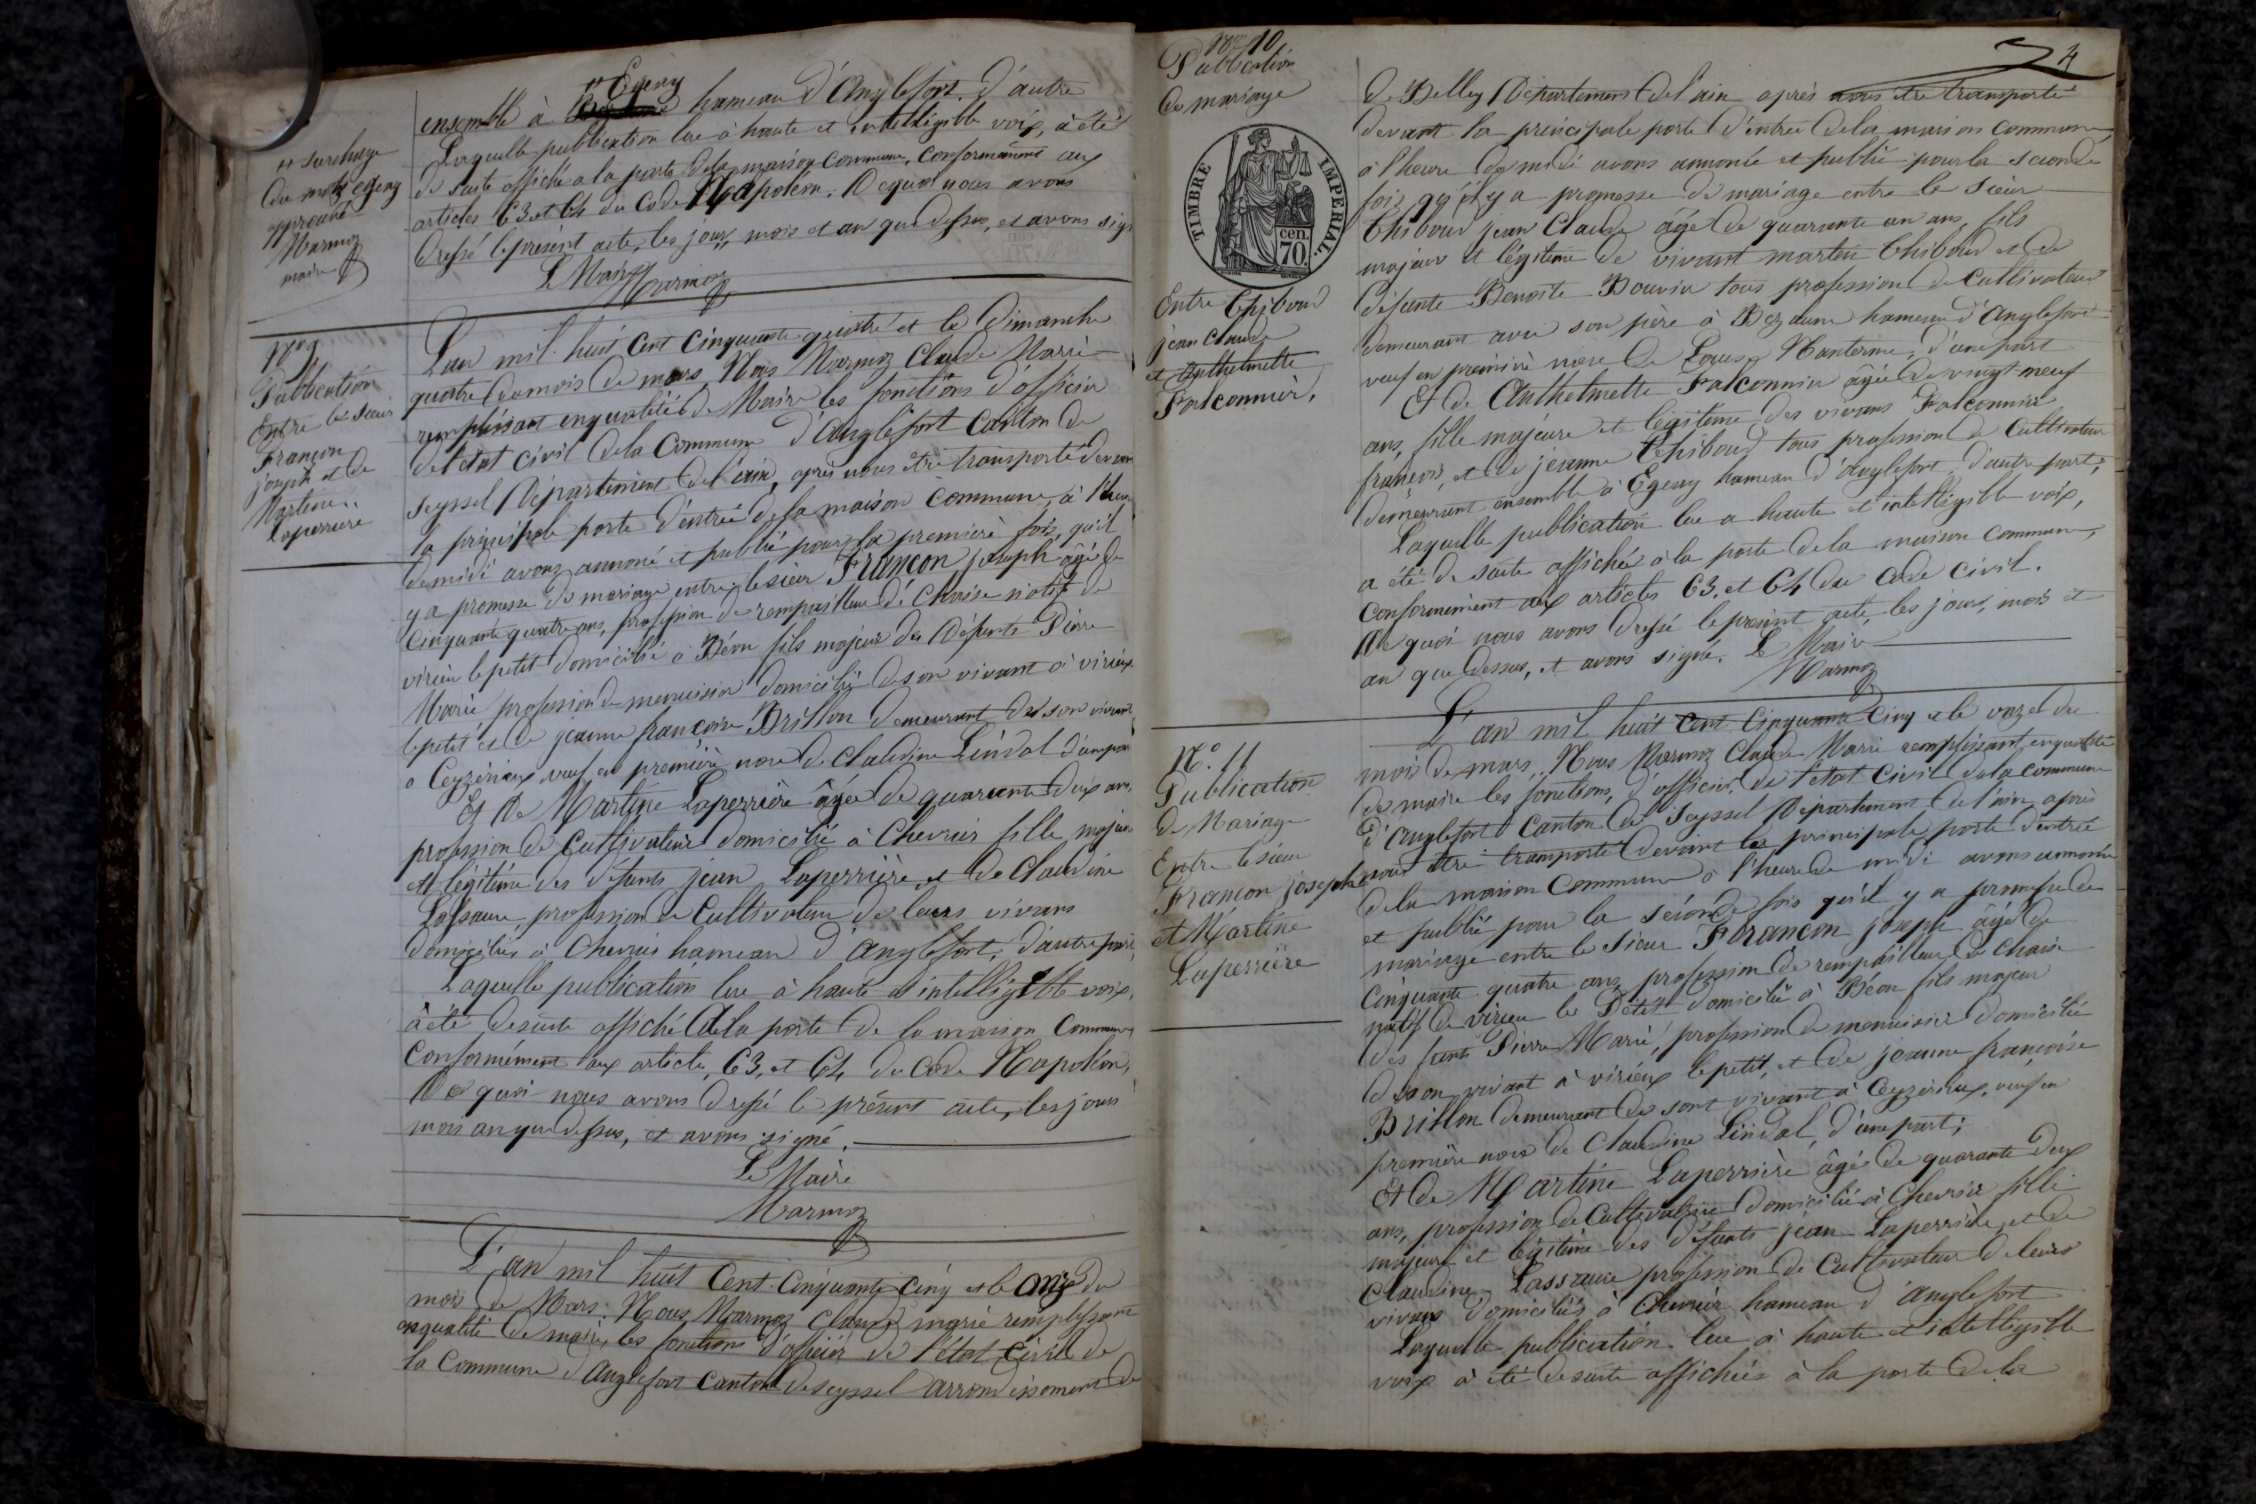 ensemble à Egeay hameau d'Anglefort. d'autre
Laquelle publication lue à haute et intelligible voix, a été
de suite affiché a la porte dela maison commune, conformément aux
articles 63 et 64 du Code Napoléon. De quoi nous avons
dressé le présent acte, les jour, mois et an que dessus, et avons sign
Le Maire Marmoz
surcharge
du mot Egeay
approuvé
Marmoz
maire
N° 9
Publication
Entre le sieur
Françon
joseph et de
Martine
Laperriere
L'an mil huit cent cinquante quatre et le dimanche
quatre du mois de mars, Nous Marmoz Claude Marie
remplissant enqualité de Maire les fonctions d'officier
del'etat civil dela Commune d'Anglefort Canton de
Seyssel Département del'ain, après nous être transporté devant
la principale porte d'entrée dela maison commune, à l'heure
de midi avons annoncé et publié pour la première fois, qu'il
y a promesse de mariage entre le sieur Françon joseph âgé de
cinquante quatre ans, profession de rempailleur de chaise natif de
virieu le petit domicilié à Béon fils majeur des défunts Pierre
Marie, profession de menuisier domicilié de son vivant à virieux
le petit et de jeanne françoise Brillon demeurant de son vivant
à Ceyzérieux veuf en première noce de Claudine Lindal d'une part
Et de Martine Laperrière âgée de quarante deux ans,
profession de Cultivateur domicilié à Chevrier fille majeure
et légitime des défunts jean Laperrière, et de Claudine
Lassause, profession de Cultivateur de leurs vivans
domiciliés à Chevrier hameau d'anglefort, d'autre part,
Laquelle publication lue à haute et intelligible voix,
a été desuite affiché à la porte de la maison commune
Conformément aux articles, 63, et 64 du Code Napoléon,
De quoi nous avons dressé le présent acte, les jours
mois an que dessus, et avons signé.
Le Maire
Marmoz
L'an mil huit Cent Cinquante Cinq et le onze du
mois de Mars. Nous Marmoz Claude marie remplissant
enqualité de maire, les fonctions d'officier de l'état civil de
la Commune d'Anglefort Canton de seyssel arrondissement de
N° 10
Publication
du mariage
TIMBRE IMPERIAL
cen.
70.
Entre Thiboud
jean Claude
et Anthelmette
Falconnier,
4
de Belley Département del'ain après nous être transporté
devant la principale porte d'entrée dela maison commune
à l'heure de midi avons annoncé et publié pour la seconde
fois, qu'il y a promesse de mariage entre le sieur
Thiboud jean Claude âgé de quarante un ans, fils
majeur et légitime de vivant marten Thiboud et de
défunte Benoite Bouvier tous profession de Cultivateur
demeurant avec son pere à Bezaune hameau d'Anglefort
veuf en première noce de Louise Nanterme, d'une part
Et de Anthelmette Falconnier âgée de vingt neuf
ans, fille majeure et légitime des vivans Falconnier
françois, et de jeanne Thiboud tous profession de Cultivateur
demeurant ensemble à Egeay hameau d'anglefort, d'autre part,
Laquelle publication lue a haute et intelligible voix,
a été de suite affichée à la porte de la maison commune,
conformément aux articles 63, et 64 du Code Civil.
De quoi nous avons dressé le présent acte, les jour, mois et
an que dessus, et avons signé. Le Maire
Marmoz
N°. 11
Publication
de Mariage
Entre le sieur
Françon joseph
et Martine
Laperrière
L'an mil huit cent cinquante cinq et le onze du
mois de mars, Nous Marmoz Claude Marie remplissant, enqualité
de maire les fonctions, d'officier, de l'état Civil de la commune
d'Anglefort Canton de Seyssel Département de l'ain après
nous être transporté devant la principale porte d'entrée
dela maison Commune à l'heure de midi avons annoncé
et publié pour la séconde fois qu'il y a promesse de
mariage entre le sieur Françon joseph âgé de
cinquante quatre ans, profession de rempailleur de chaise
natif de virieu le Petit domicilié à Béon fils majeur
des funts Pierre Marie, profession de menuisier domicilié
deson vivant à virieux le petit, et de jeanne françoise
Brillon demeurant de sont vivant à Ceyzerieux, veuf en
première noce de Claudine Lindal, d'une part;
Et de Martine Laperrière âgé de quarante deux
ans, profession de Cultivateur domicilié à Chevrier fille
majeure et légitime des défunts jean Laperrière, et de
Claudine Lassause profession de Cultivateur de leurs
vivans domiciliés à Chevrier hameau d'Anglefort
Laquelle publication lue à haute et intelligible
voix a été desuite affichée à la porte de la